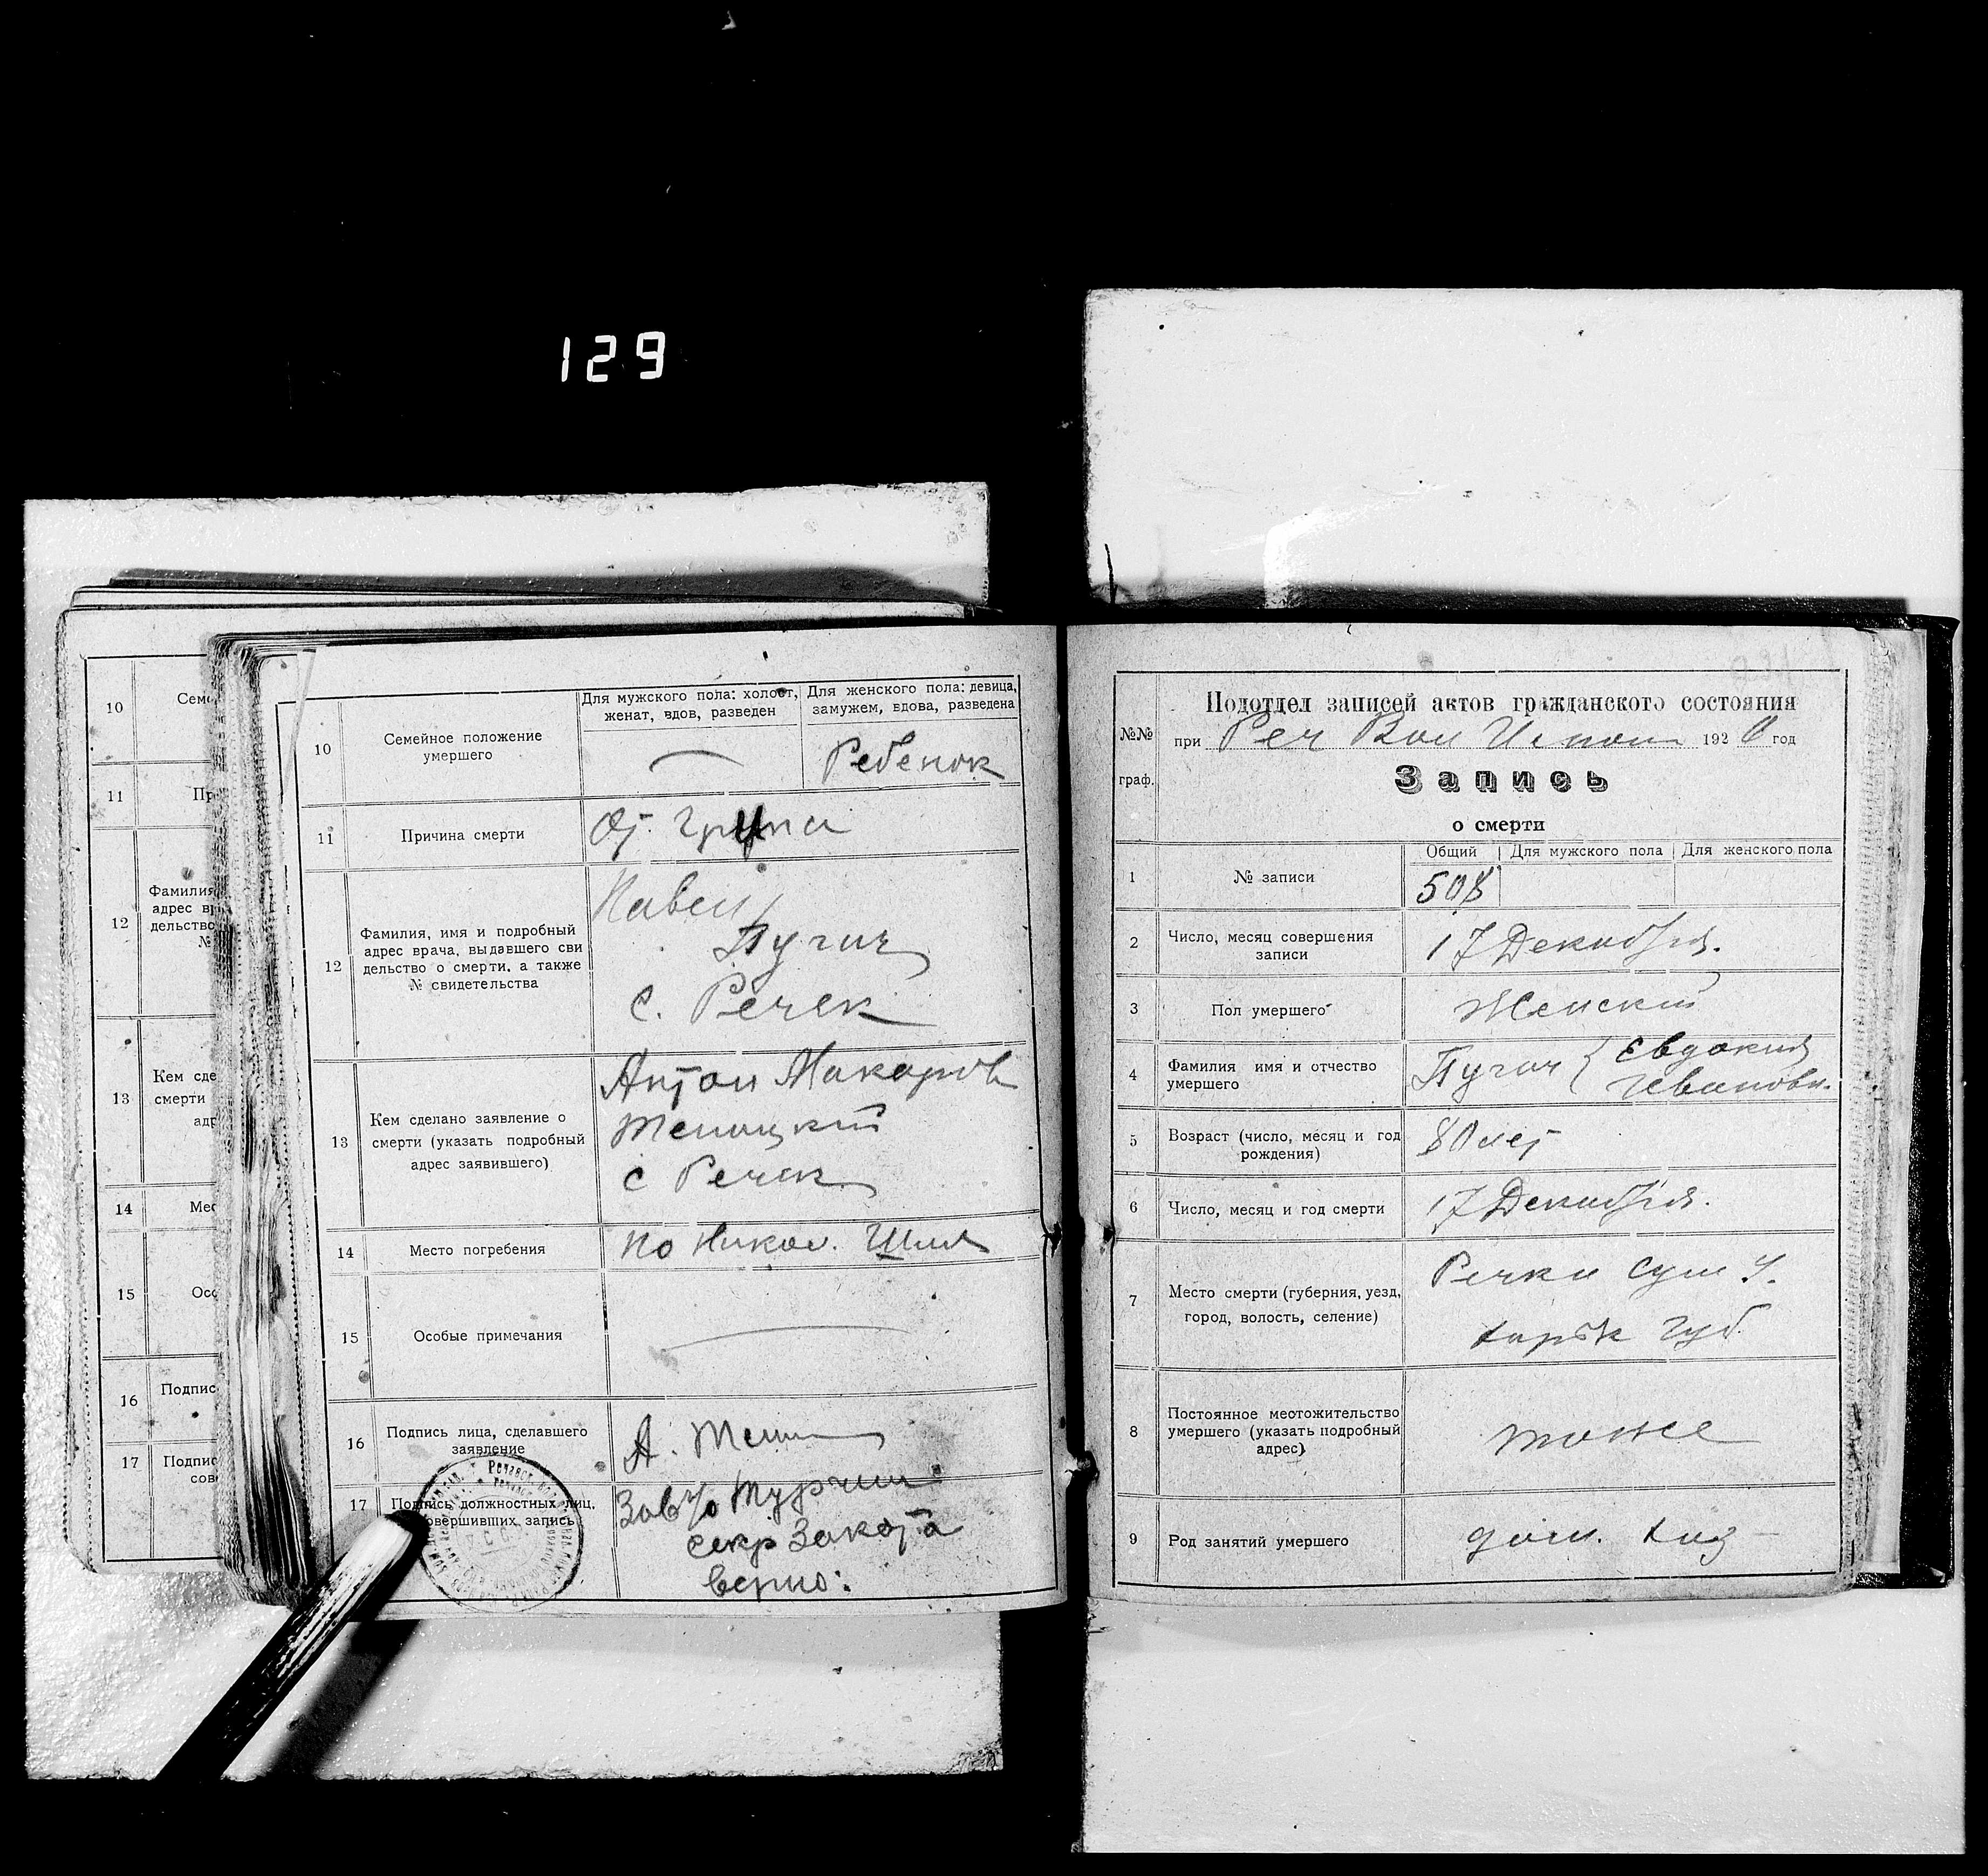 129
10
Семе
11
Пр
12
Фамилия
адрес в
дельство
№
13
Кем сде
смерти
адр
14
Мес
15
Осо
16
Подпис
17
Подпис
сов
10
Семейное положение
умершего
Для мужского пола: холост,
женат, вдов, разведен
Для женского пола: девица,
замужем, вдова, разведена
Ребенок
11
Причина смерти
От
12
Фамилия, имя и подробный
адрес врача, выдавшего сви
дельство о смерти, а также
№ свидетельства
Павел
Пугач
с. Речек
13
Кем сделано заявление о
смерти (указать подробный
адрес заявившего)
Антон Макаров
с Речек
14
Место погребения
по Никол.
15
Особые примечания
16
Подпись лица, сделавшего
заявление
А.
17
Подпись должностных лиц,
совершивших запись
Зав
секр
верно:
№№
граф.
Подотдел записей актов гражданского состояния
при Реч Вол Исполк 1920 год
Запись
о смерти
1
№ записи
Общий
Для мужского пола
Для женского пола
508
2
Число, месяц совершения
записи
17 Декабря.
3
Пол умершего
Женский
4
Фамилия имя и отчество
умершего
Пугач { Евдокия
Ивановн.
5
Возраст (число, месяц и год
рождения)
80 лет
6
Число, месяц и год смерти
17 Декабря.
7
Место смерти (губерния, уезд,
город, волость, селение)
Речки Сум У.
Харьк губ.
8
Постоянное местожительство
умершего (указать подробный
адрес)
тоже
9
Род занятий умершего
дом. хоз